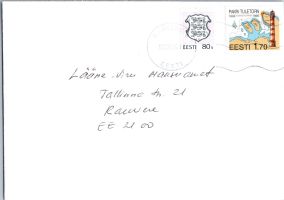 PAKRI TULETORN
EESTI 80s
EESTI 1.70
Lääne-Viru Maavalitsus
Tallinna tn. 21
Rakvere
EE 2100